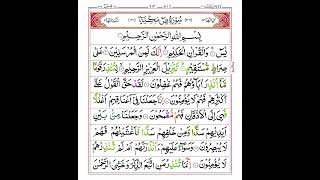 سُوْرَةُ يٰسٓ مَكِّيَّةٌ
بِسْمِ اللّٰهِ الرَّحْمٰنِ الرَّحِيْمِ
يٰسٓ ۚ وَالْقُرْاٰنِ الْحَكِيْمِ ۙ اِنَّكَ لَمِنَ الْمُرْسَلِيْنَ ۙ عَلٰى
صِرَاطٍ مُّسْتَقِيْمٍ ؕ تَنْزِيْلَ الْعَزِيْزِ الرَّحِيْمِ ۙ لِتُنْذِرَ قَوْمًا
مَّاۤ اُنْذِرَ اٰبَآؤُهُمْ فَهُمْ غٰفِلُوْنَ لَقَدْ حَقَّ الْقَوْلُ عَلٰۤى
اَكْثَرِهِمْ فَهُمْ لَا يُؤْمِنُوْنَ اِنَّا جَعَلْنَا فِيْۤ اَعْنَاقِهِمْ اَغْلٰلًا
فَهِيَ اِلَى الْاَذْقَانِ فَهُمْ مُّقْمَحُوْنَ وَجَعَلْنَا مِنْۢ بَيْنِ
اَيْدِيْهِمْ سَدًّا وَّمِنْ خَلْفِهِمْ سَدًّا فَاَغْشَيْنٰهُمْ فَهُمْ
لَا يُبْصِرُوْنَ وَسَوَآءٌ عَلَيْهِمْ ءَاَنْذَرْتَهُمْ اَمْ لَمْ تُنْذِرْهُمْ
لَا يُؤْمِنُوْنَ اِنَّمَا تُنْذِرُ مَنِ اتَّبَعَ الذِّكْرَ وَخَشِيَ الرَّحْمٰنَ